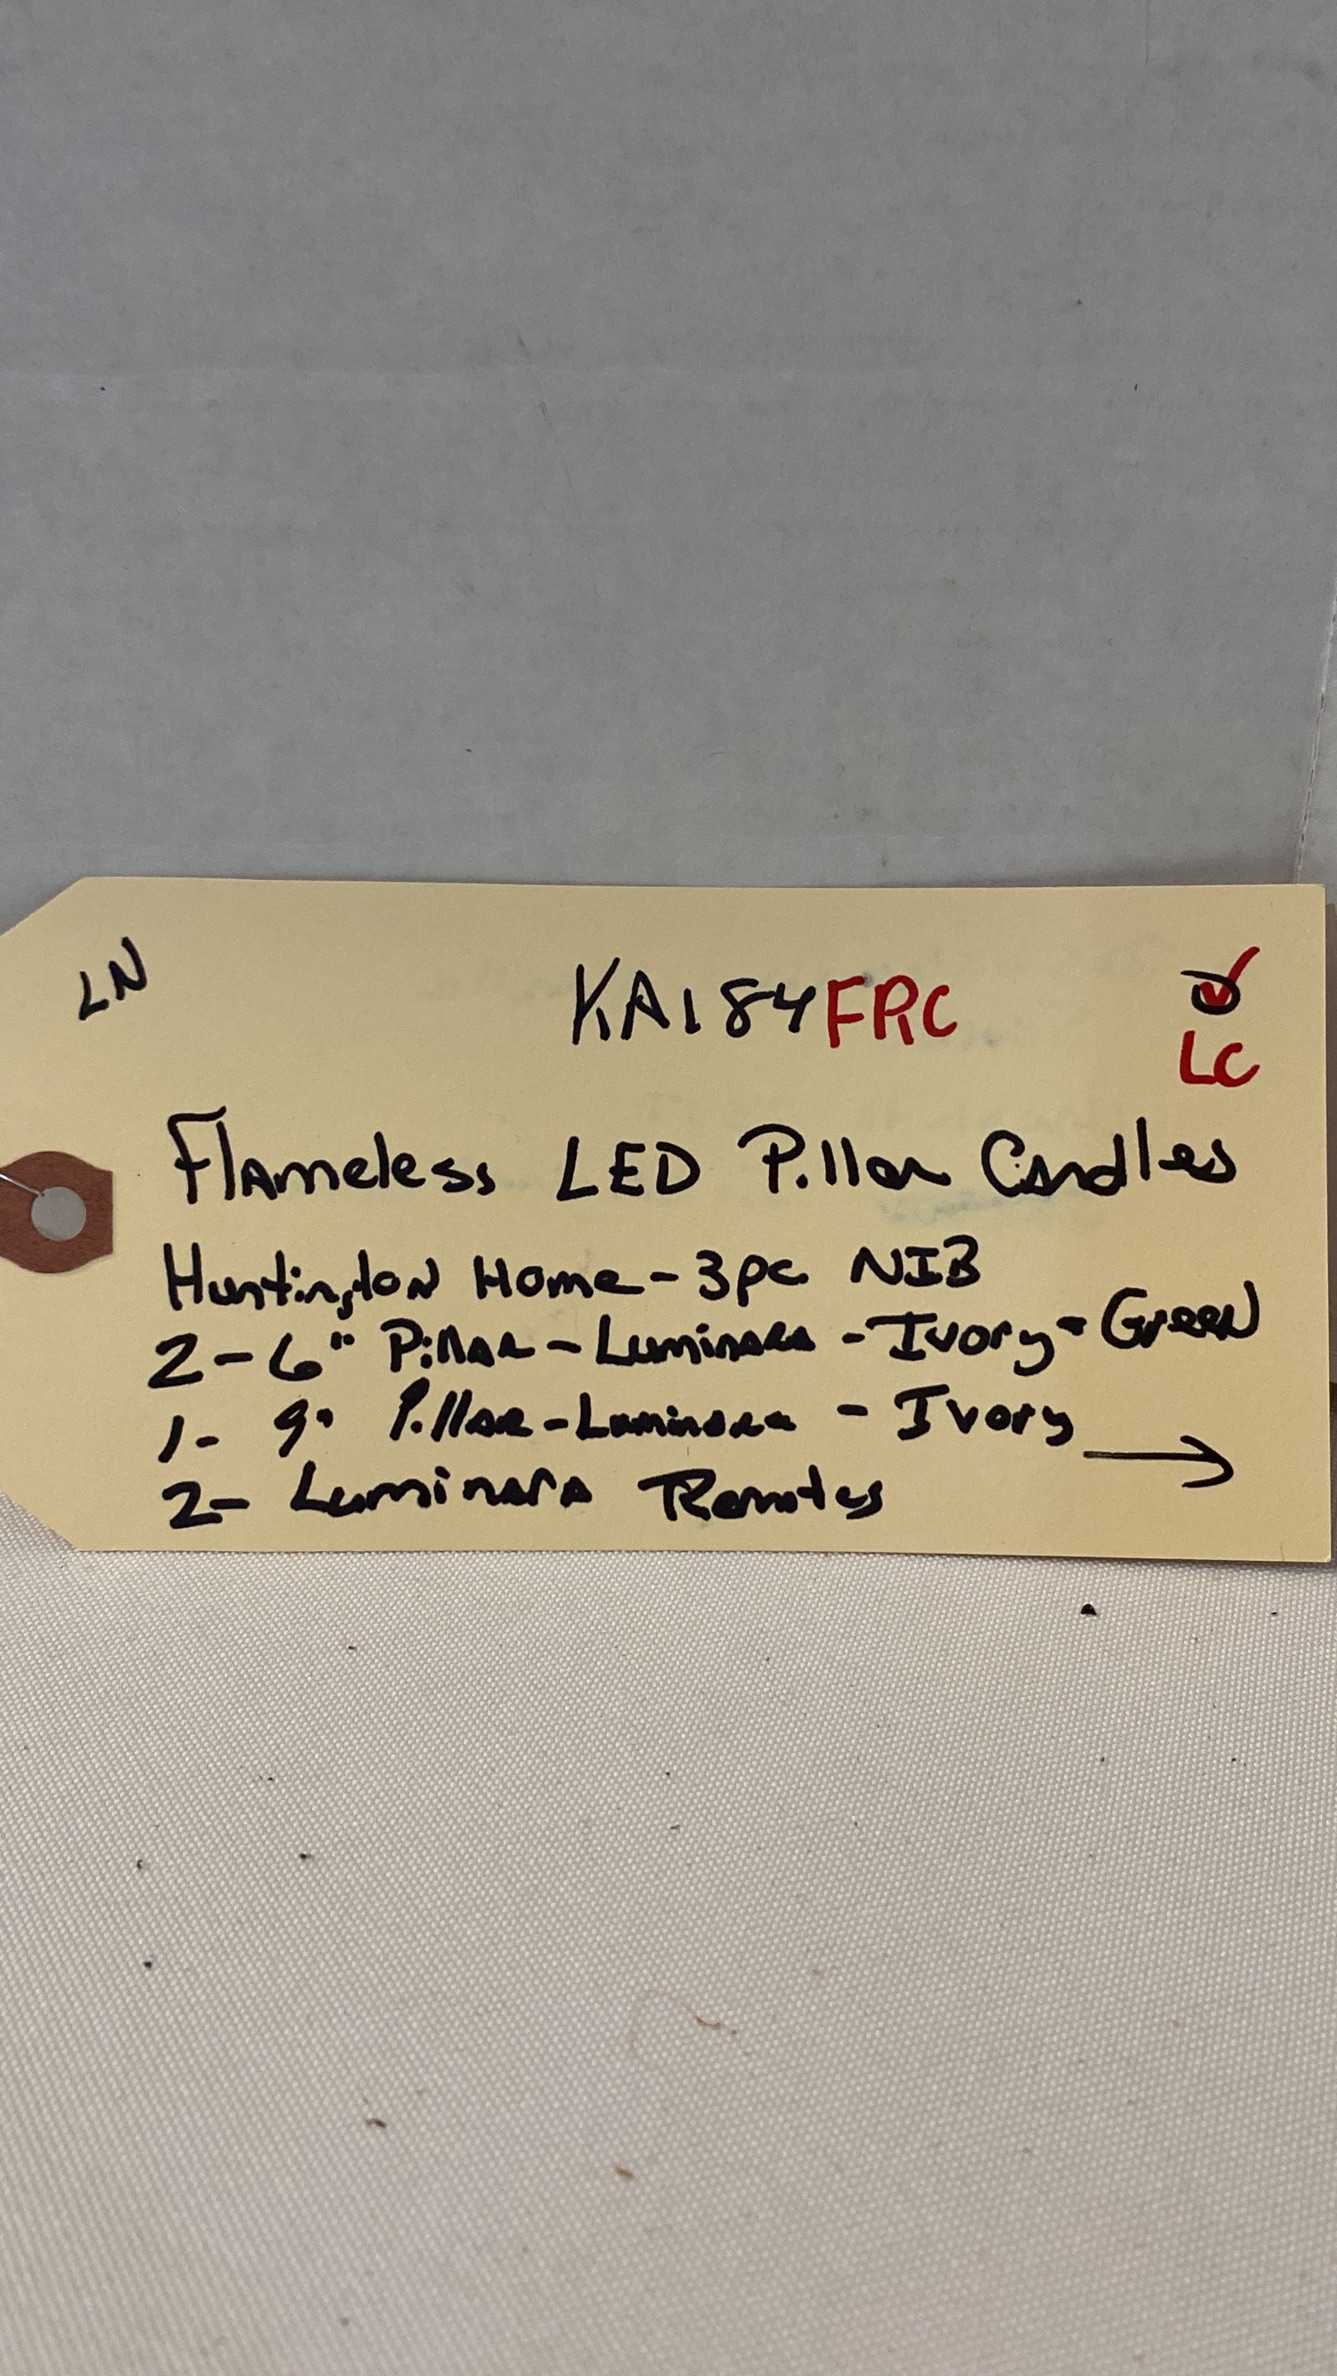 LN
KA184FRC
LC
Flameless LED Pillar Candles
Huntington Home - 3pc NIB
2 - 6" Pillar - Luminara - Ivory - Green
1 - 9" Pillar - Luminara - Ivory →
2 - Luminara Remotes